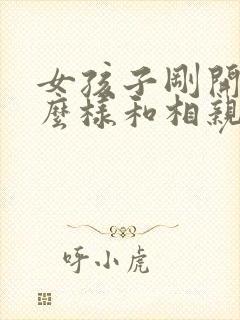 女孩子剛開
麼樣和相親
呼小虎